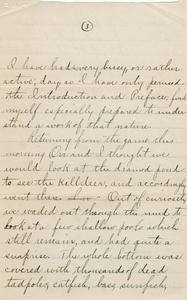 (3)
I have had a very busy, or rather
active, day as I have only perused
the Introduction and Preface, find
myself especially prepared to under-
stand a work of that nature.
Returning from the game this
morning Ori and I thought we
would look at the diamond pond
to see the Killdeer, and accordingly
went there. Out of curiosity
we waded out though the mud to
look at a few shallow pools which
still remain, and had quite a
surprise. The whole bottom was
covered with thousands of dead
tadpoles, catfish, bass, sunfish,